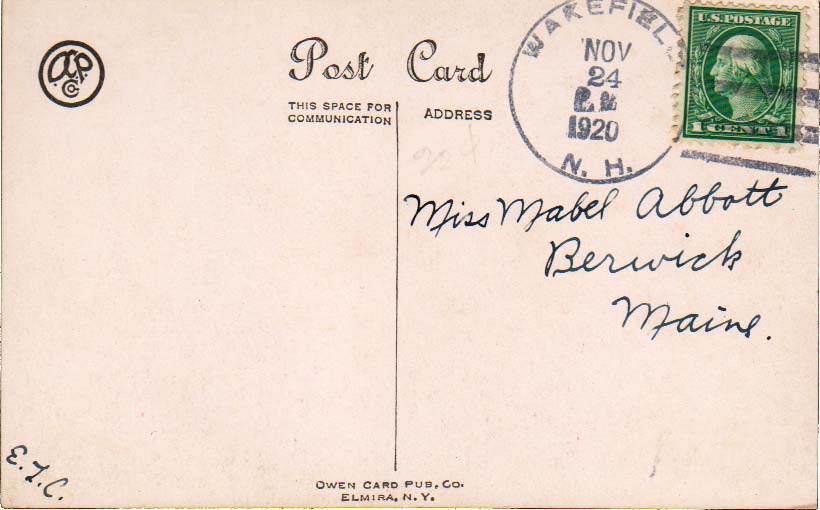 Post Card
THIS SPACE FOR
COMMUNICATION
ADDRESS
WAKEFIELD
NOV
24
1920
N. H.
U.S. POSTAGE
1 CENT 1
Miss Mabel Abbott
Berwick
Maine.
E.L.C.
OWEN CARD PUB. CO.
ELMIRA, N. Y.